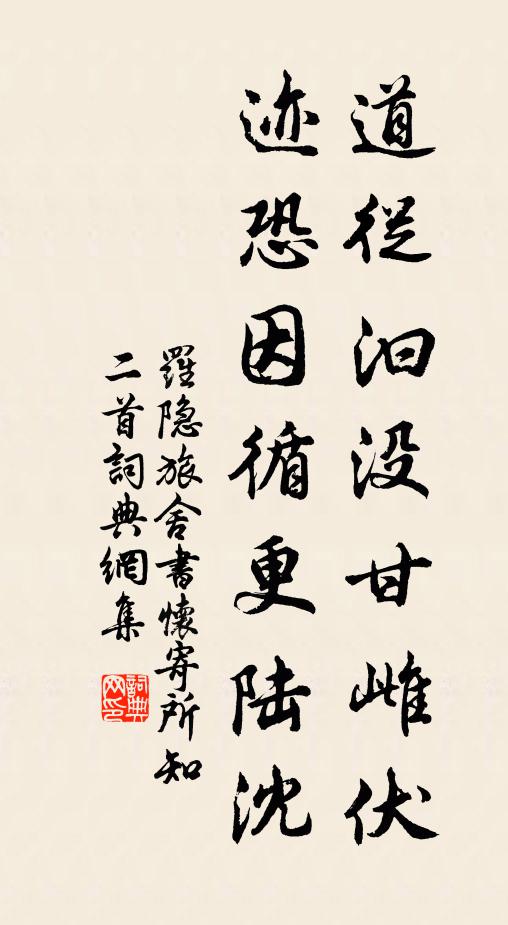 道從汩没甘雌伏
迹恐因循更陆沈
羅隐旅舍書懷寄所知
二首詞典網集
詞典
网印